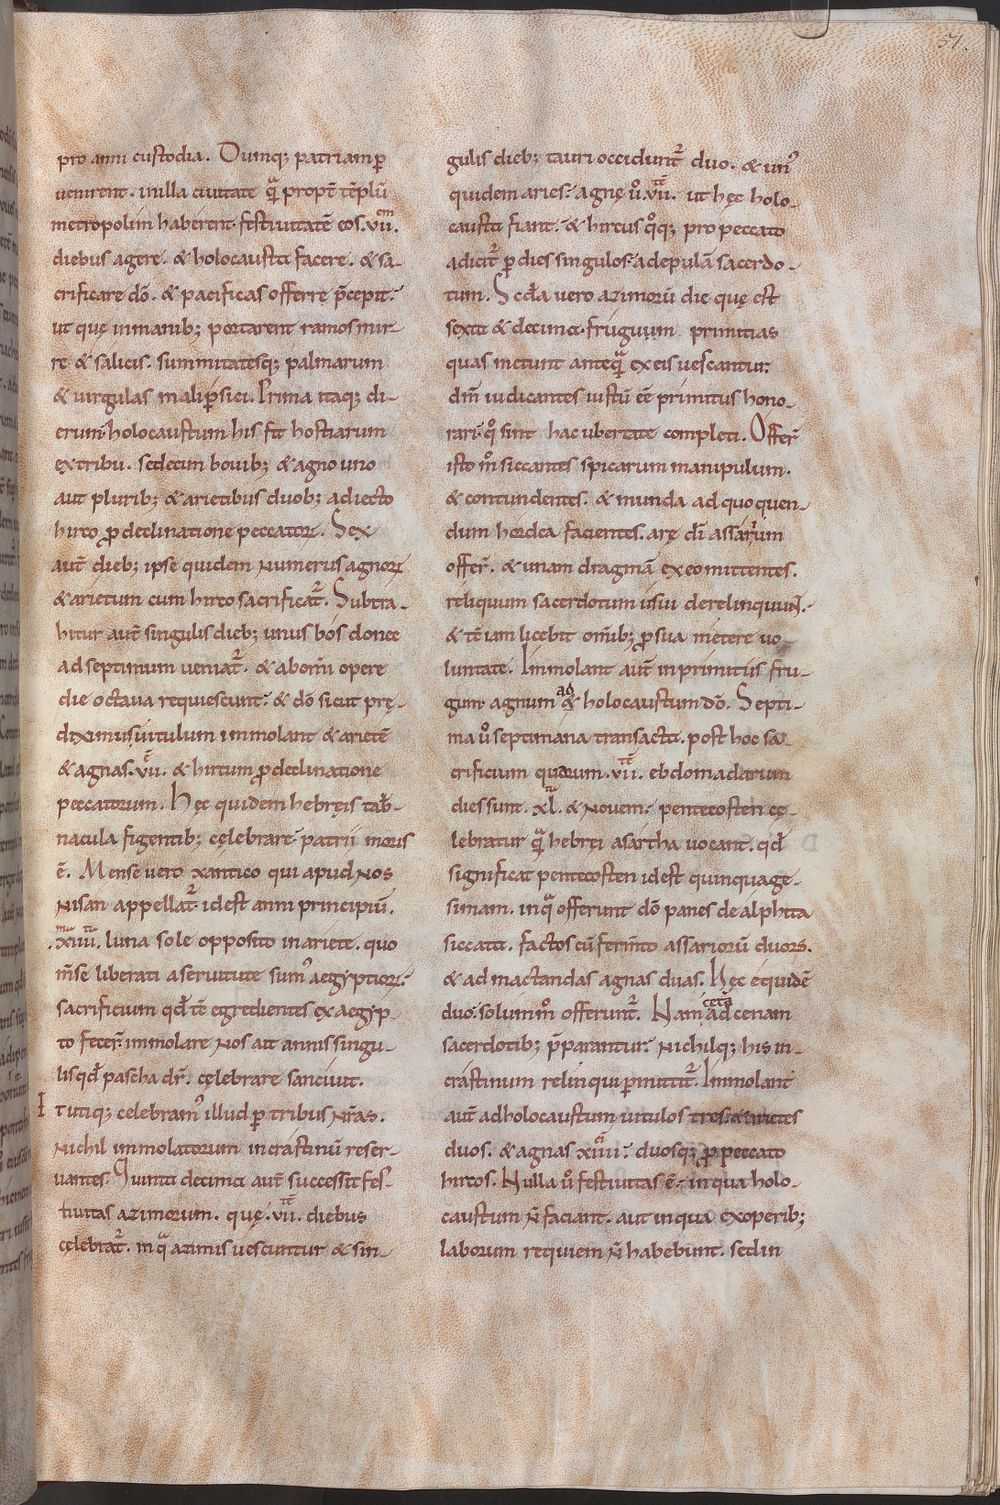 51.
pro anni custodia. Dumq; patriam ꝑ
uenirent. in illa ciuitate q̄ propt̄ tēplū
metropolim haberent. festiuitatē eos .vii.em
diebus agere. & holocausta facere. & sa-
crificare dō. & pacificas offerre p̄cepit:
ut quę in manib; portarent ramos mir-
re & salicis. summitatesq; palmarum
& uirgulas mali ꝑsici. Prima itaq; di-
erum holocaustum his fit hostiarum
ex tribu. sedecim bouib; & agno uno
aut plurib; & arietibus duob; adiecto
hirco ꝓ declinatione peccatoꝝ. Sex
aut̄ dieb; ipse quidem numerus agnoꝝ
& arietum cum hirco sacrificat᷑. Subtra-
hitur aut̄ singulis dieb; unus bos donec
ad septimum ueniat᷑. & ab om̄i opere
die octaua requiescunt: & dō sicut prę-
diximus uitulum immolant & arietē
& agnas .vii.tē & hircum ꝓ declinatione
peccatorum. Hęc quidem hebręis tab̄-
nacula figentib; cęlebrare patrii moris
ē. Mense uero xantico qui apud nos
nisan appellat᷑. id est anni principiū.
.xiiii. luna sole opposito in ariete. quo
m̄se liberati a seruitute sumꝰ aegyptioꝝ:
sacrificium qd̄ tē egredientes ex aegyp-
to fecer̄ immolare nos ait annis singu-
lis qd̄ pascha dr̄. cęlebrare sanciuit.
Itutiq; celebramꝰ illud ꝑ tribus nr̄as.
nichil immolatorum in crastinū reser-
uantes. Quinta decima aut̄ successit fes-
tiuitas azimorum. quę .vii.tē diebus
cęlebrat᷑. in q̄ azimis uescuntur & sin-
gulis dieb; tauri occidunt᷑ duo. & unꝰ
quidem aries: agnę ů .vii.tē ut hęc holo-
causta fiant. & hircus q̊q; pro peccato
adicit᷑ ꝑ dies singulos: ad epulā sacerdo-
tum. Scd̄a uero azimorū die quę est
sexta & decima. frugum primitias
quas metunt anteq̄ ex eis uescantur:
dm̄ iudicantes iustū ēē primitus hono-
rari. q̊ sint hac ubertate completi. Offer̄
isto m̊ siccantes spicarum manipulum.
& contundentes. & munda ad quoquen-
dum hordea facientes. arę dī assarium
offer̄. & unam dragmā ex eo mittentes.
reliquum sacerdotum usui derelinquunt.
& tē iam licebit om̄ib; ꝓ sua metere uo
luntate. Immolant aut̄ in primitiis fru-
gum agnum ad & holocaustum dō. Septi-
ma ů septimana transacta. post hoc sa-
crificium quorum .vii.tē ebdomadarum
dies sunt .xl. & nouem: pentecosten cę-
lebratur q̄ hebrei asartha uocant. qd̄
significat pentecosten id est quinquage-
simam. in q̄ offerunt dō panes de alphita
siccata. factos cū fermto assariorū duoꝝ.
& ad mactandas agnas duas. Hęc equidē
duo: solum m̊ offerunt᷑. Nam cetā ad cenam
sacerdotib; p̄parantur: nichilq; his in
crastinum relinqui ꝑmittit᷑. Immolant
aut̄ ad holocaustum uitulos tres. & arietes
duos. & agnas xiiii: duosq; ꝓ peccato
hircos. Nulla ů festiuitas ē. in qua holo-
caustum n̄ faciant. aut in qua ex operib;
laborum requiem n̄ habebunt. sed in